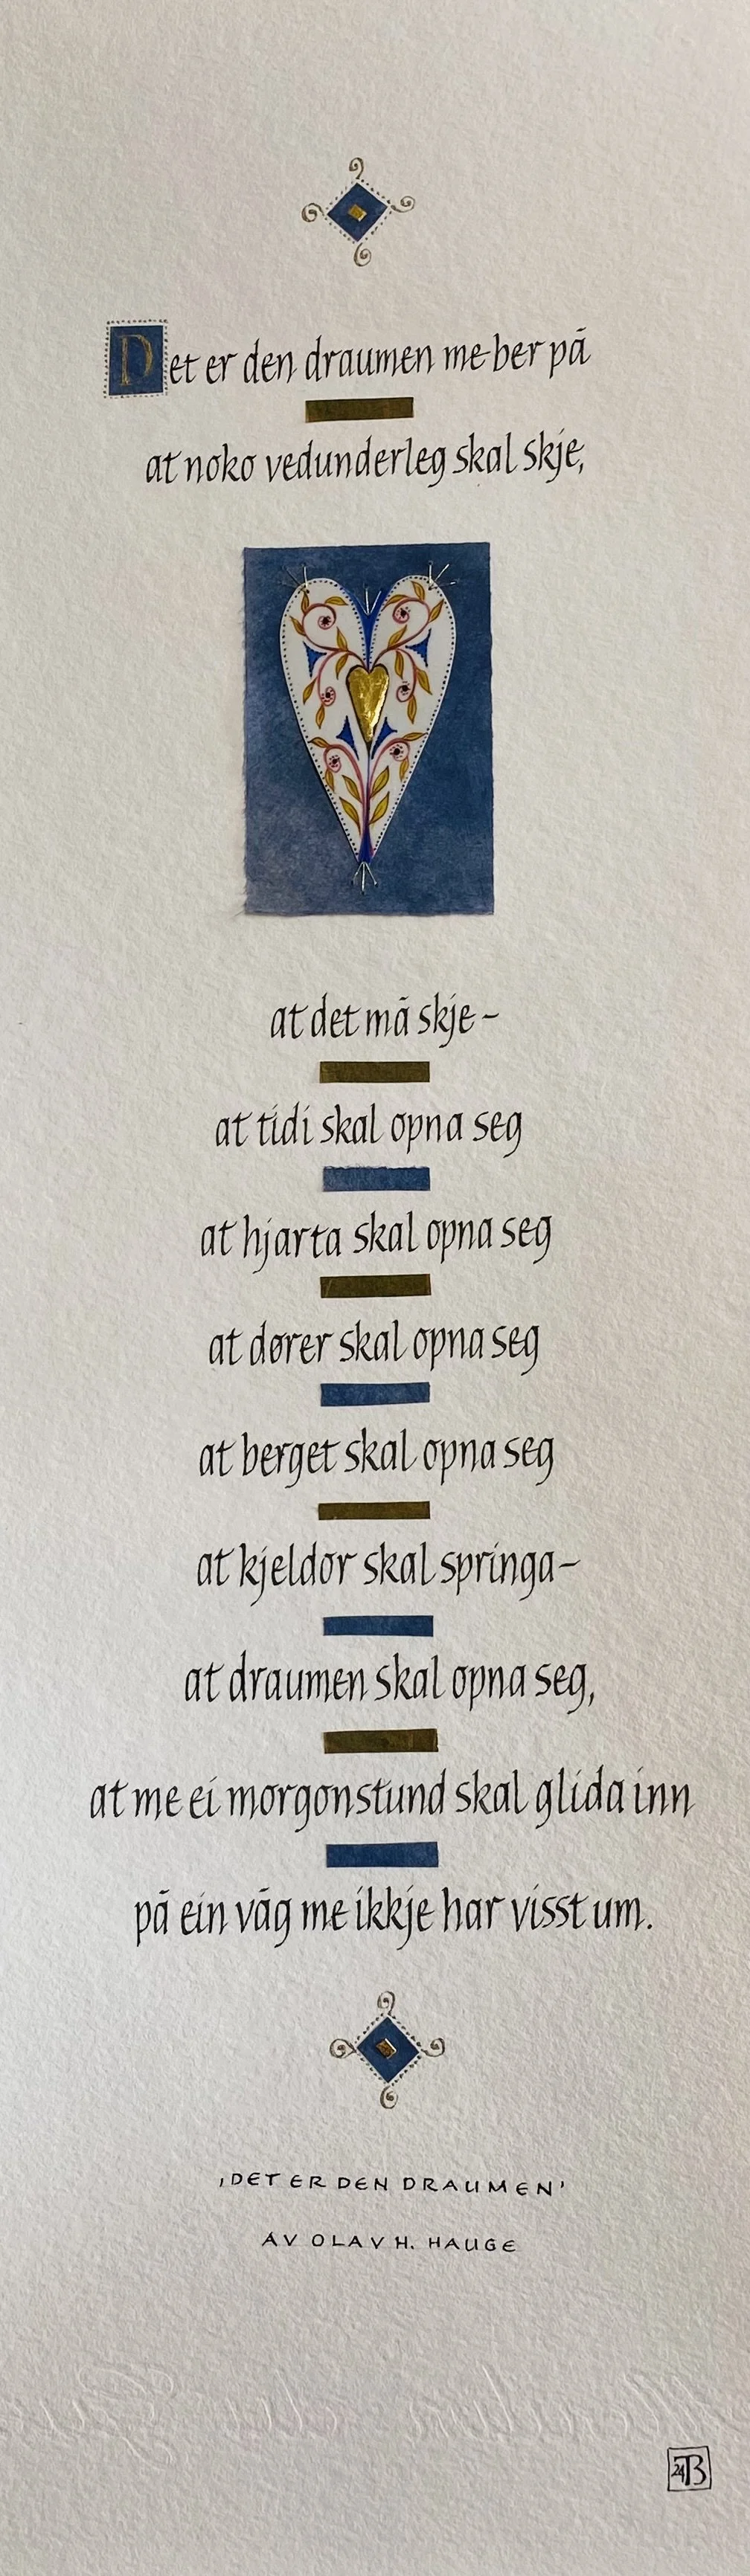 Det er den draumen me ber på
at noko vedunderleg skal skje,
at det må skje –
at tidi skal opna seg
at hjarta skal opna seg
at dører skal opna seg
at berget skal opna seg
at kjeldor skal springa –
at draumen skal opna seg,
at me ei morgonstund skal glida inn
på ein våg me ikkje har visst um.
'DET ER DEN DRAUMEN'
AV OLAV H. HAUGE
24 TB